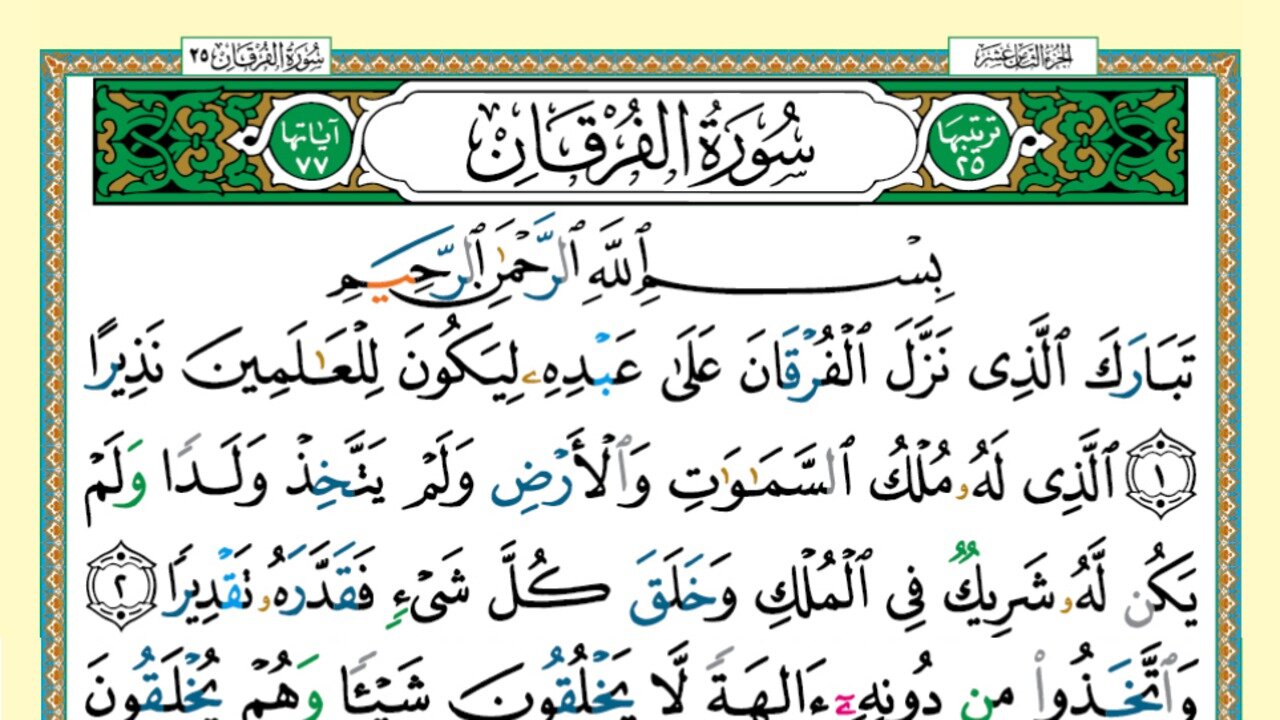 الجزء الثامن عشر
سُورَةُ الفُرْقَان ٢٥
تَرتيبُهَا ٢٥
سُورَةُ الفُرْقَانِ
آيَاتهَا ٧٧
بِسْمِ ٱللَّهِ ٱلرَّحْمَٰنِ ٱلرَّحِيمِ
تَبَارَكَ ٱلَّذِى نَزَّلَ ٱلْفُرْقَانَ عَلَىٰ عَبْدِهِۦ لِيَكُونَ لِلْعَٰلَمِينَ نَذِيرًا
١ ٱلَّذِى لَهُۥ مُلْكُ ٱلسَّمَٰوَٰتِ وَٱلْأَرْضِ وَلَمْ يَتَّخِذْ وَلَدًا وَلَمْ
يَكُن لَّهُۥ شَرِيكٌ فِى ٱلْمُلْكِ وَخَلَقَ كُلَّ شَىْءٍ فَقَدَّرَهُۥ تَقْدِيرًا ٢
وَٱتَّخَذُوا۟ مِن دُونِهِۦٓ ءَالِهَةً لَّا يَخْلُقُونَ شَيْـًٔا وَهُمْ يُخْلَقُونَ